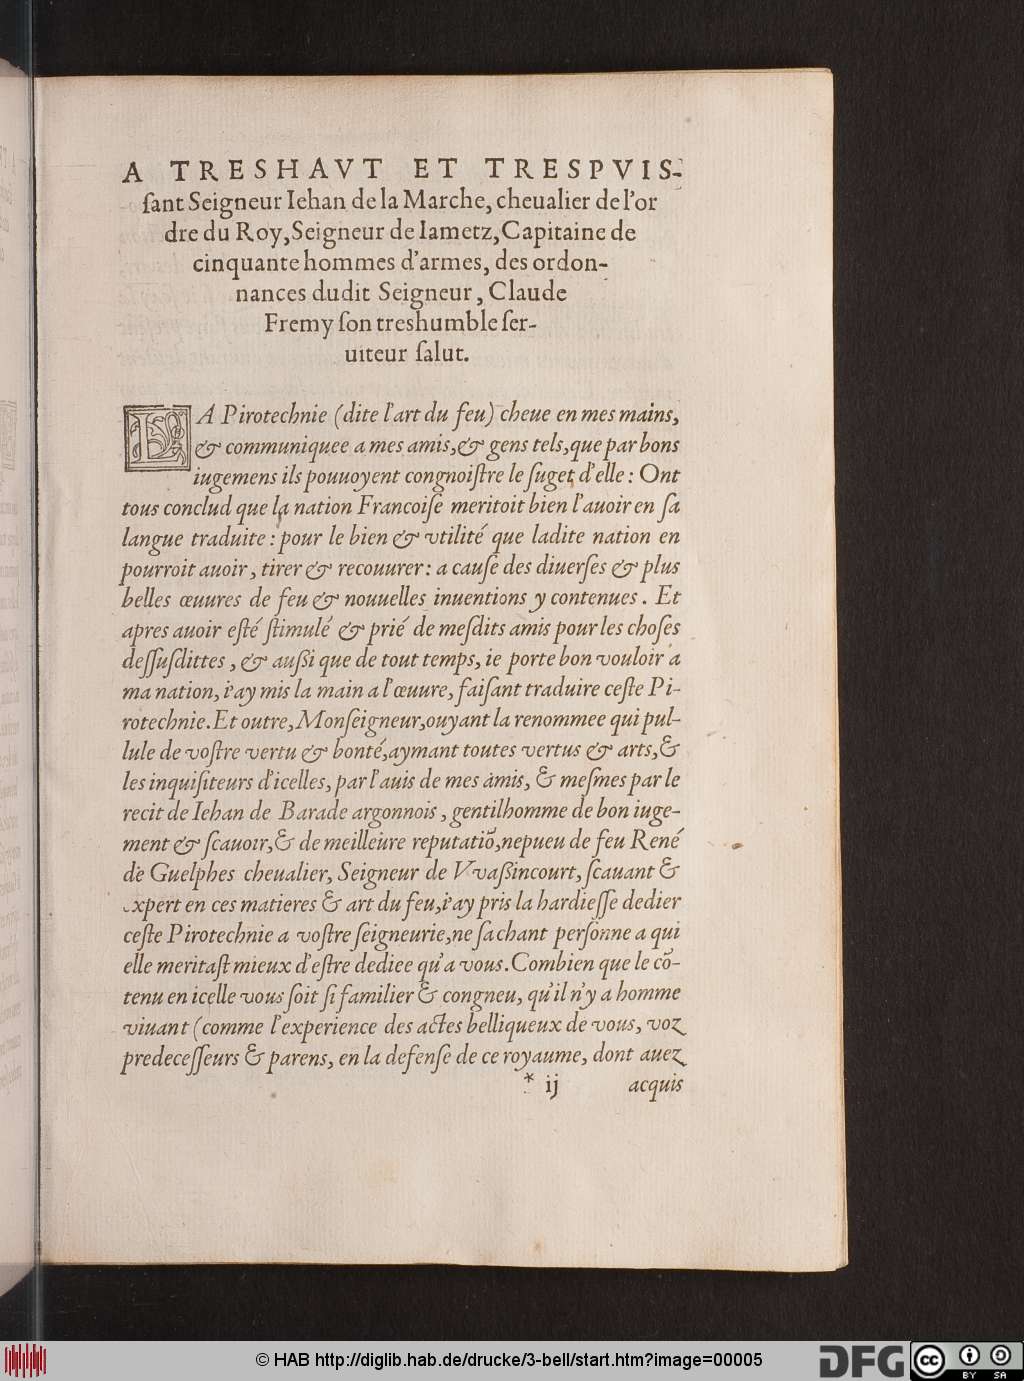 A TRESHAVT ET TRESPVIS-
ſant Seigneur Iehan de la Marche, cheualier de l'or
dre du Roy, Seigneur de Iametz, Capitaine de
cinquante hommes d'armes, des ordon-
nances dudit Seigneur, Claude
Fremy ſon treshumble ſer-
uiteur ſalut.
LA Pirotechnie (dite l'art du feu) cheue en mes mains,
& communiquee a mes amis, & gens tels, que par bons
iugemens ils pouuoyent congnoiſtre le ſuget d'elle : Ont
tous conclud que la nation Francoiſe meritoit bien l'auoir en ſa
langue traduite : pour le bien & vtilité que ladite nation en
pourroit auoir, tirer & recouurer : a cauſe des diuerſes & plus
belles œuures de feu & nouuelles inuentions y contenues. Et
apres auoir eſté ſtimulé & prié de meſdits amis pour les choſes
deſſuſdittes, & außi que de tout temps, ie porte bon vouloir a
ma nation, i'ay mis la main a l'œuure, faiſant traduire ceſte Pi-
rotechnie. Et outre, Monſeigneur, ouyant la renommee qui pul-
lule de voſtre vertu & bonté, aymant toutes vertus & arts, &
les inquiſiteurs d'icelles, par l'auis de mes amis, & meſmes par le
recit de Iehan de Barade argonnois, gentilhomme de bon iuge-
ment & ſcauoir, & de meilleure reputatiõ, nepueu de feu René
de Guelphes cheualier, Seigneur de Vvaßincourt, ſcauant &
expert en ces matieres & art du feu, i'ay pris la hardieſſe dedier
ceſte Pirotechnie a voſtre ſeigneurie, ne ſachant perſonne a qui
elle meritaſt mieux d'eſtre dediee qu'a vous. Combien que le cõ-
tenu en icelle vous ſoit ſi familier & congneu, qu'il n'y a homme
viuant (comme l'experience des actes belliqueux de vous, voz
predeceſſeurs & parens, en la defenſe de ce royaume, dont auez
* ij acquis
© HAB http://diglib.hab.de/drucke/3-bell/start.htm?image=00005
DFG
cc BY SA